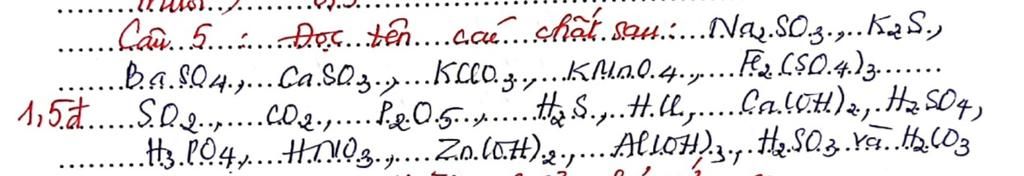 Câu 5 : Đọc tên các chất sau: Na₂SO₃, K₂S,
BaSO₄, CaSO₃, KClO₃, KMnO₄, Fe₂(SO₄)₃
1,5đ SO₂, CO₂, P₂O₅, H₂S, HCl, Ca(OH)₂, H₂SO₄,
H₃PO₄, HNO₃, Zn(OH)₂, Al(OH)₃, H₂SO₃ và H₂CO₃